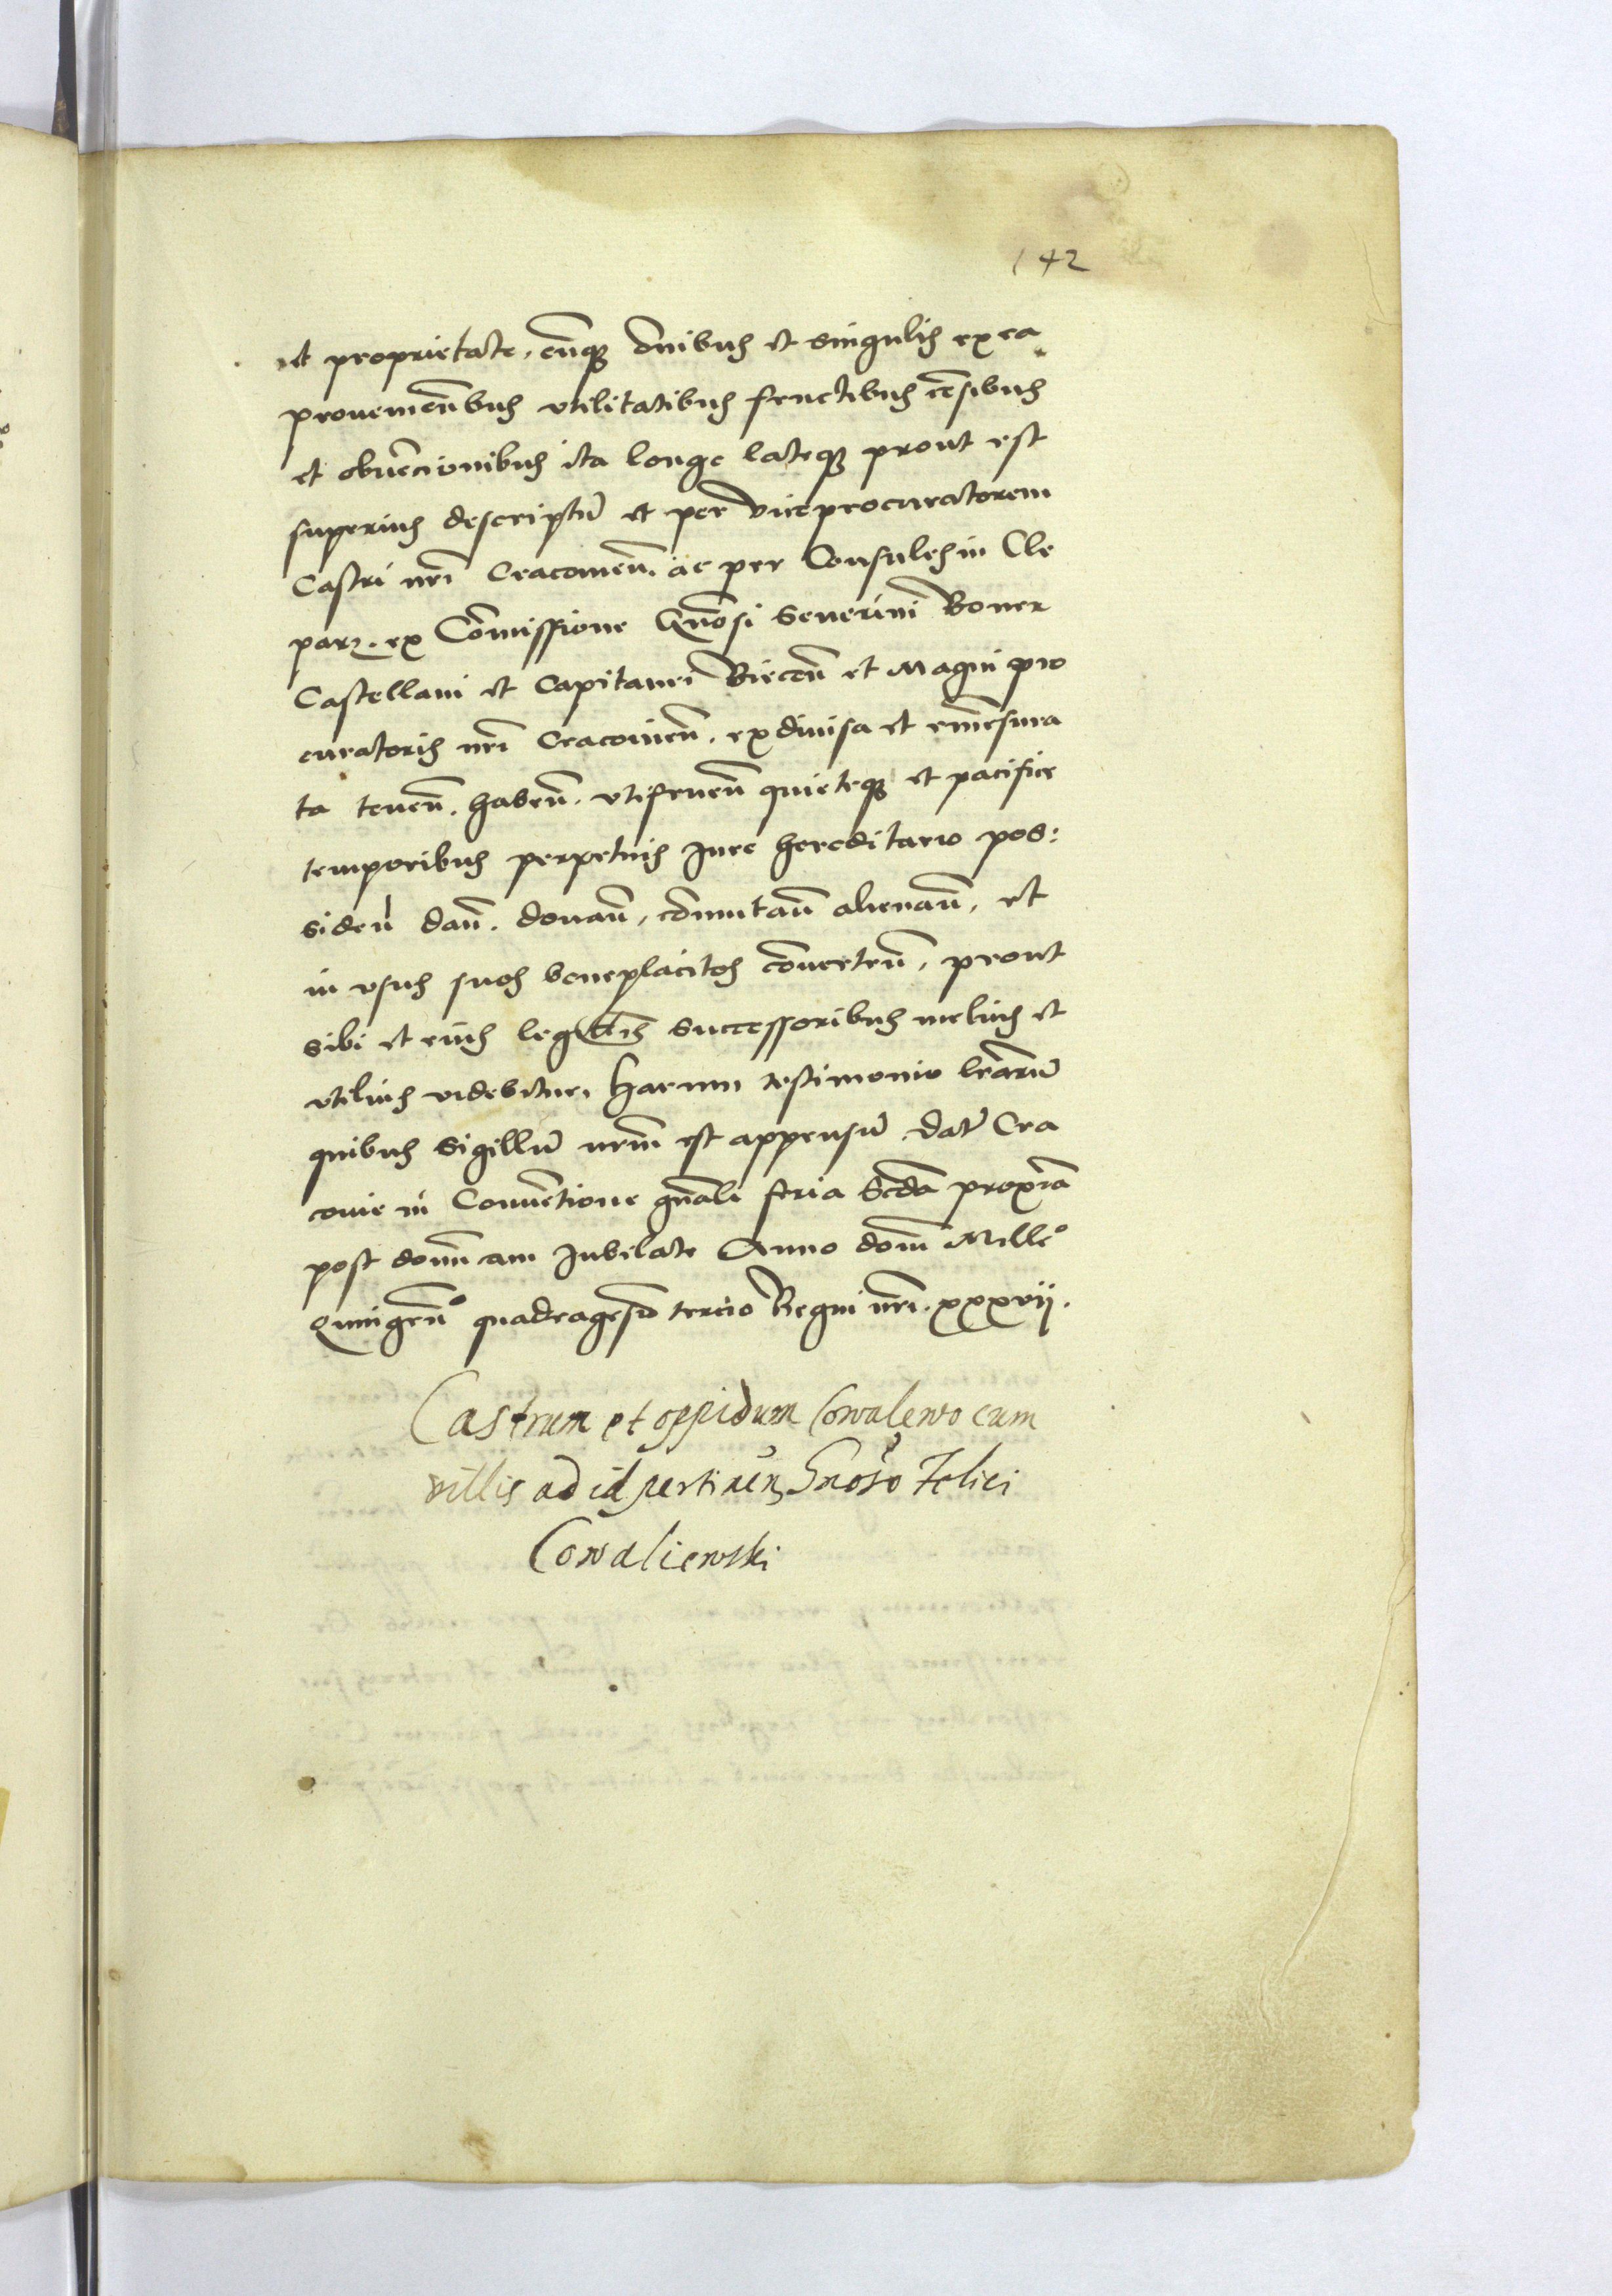 142
et proprietate, cumq₃ om̄ibus et singulis ex ea
proueniēn̄bus vtilitatibus fructibus cēsibus
et obuēcionibus ita longe lateq₃ prout est
superius descriptū et per viceprocuratorem
Castri nrī Cracouien̄. ac per Consules in Cle
parz. ex Cōmissione Gn̄osi Seuerini Boner
Castellani et Capitanei Biecen̄ et Magni pro
curatoris nrī Cracouien̄. ex diuisa et emēsura
ta tenen̄. haben̄. vtifruen̄ quieteq₃ et pacifice
temporibus perpetuis Jure hereditario pos:
siden̄ dan̄. donan̄, cōmutan̄ alienan̄, et
in vsus suos beneplacitos cōuerten̄, prout
sibi et eius legittīs successoribus melius et
vtilius videbitur, Harum testimonio lrārū
quibus Sigillū nrm̄ est appensū. Datū Cra
couie in Conuētione gn̄ali feria Scd̄a proxīa
post domīcam Jubilate Anno domī Mill̄o
Quingen̄o quadragesīo tercio Regni nrī. xxxvij.
Castrum et oppidum Cowalewo cum
villis ad id pertinen̄ Gnoso Felici
Cowaliewski